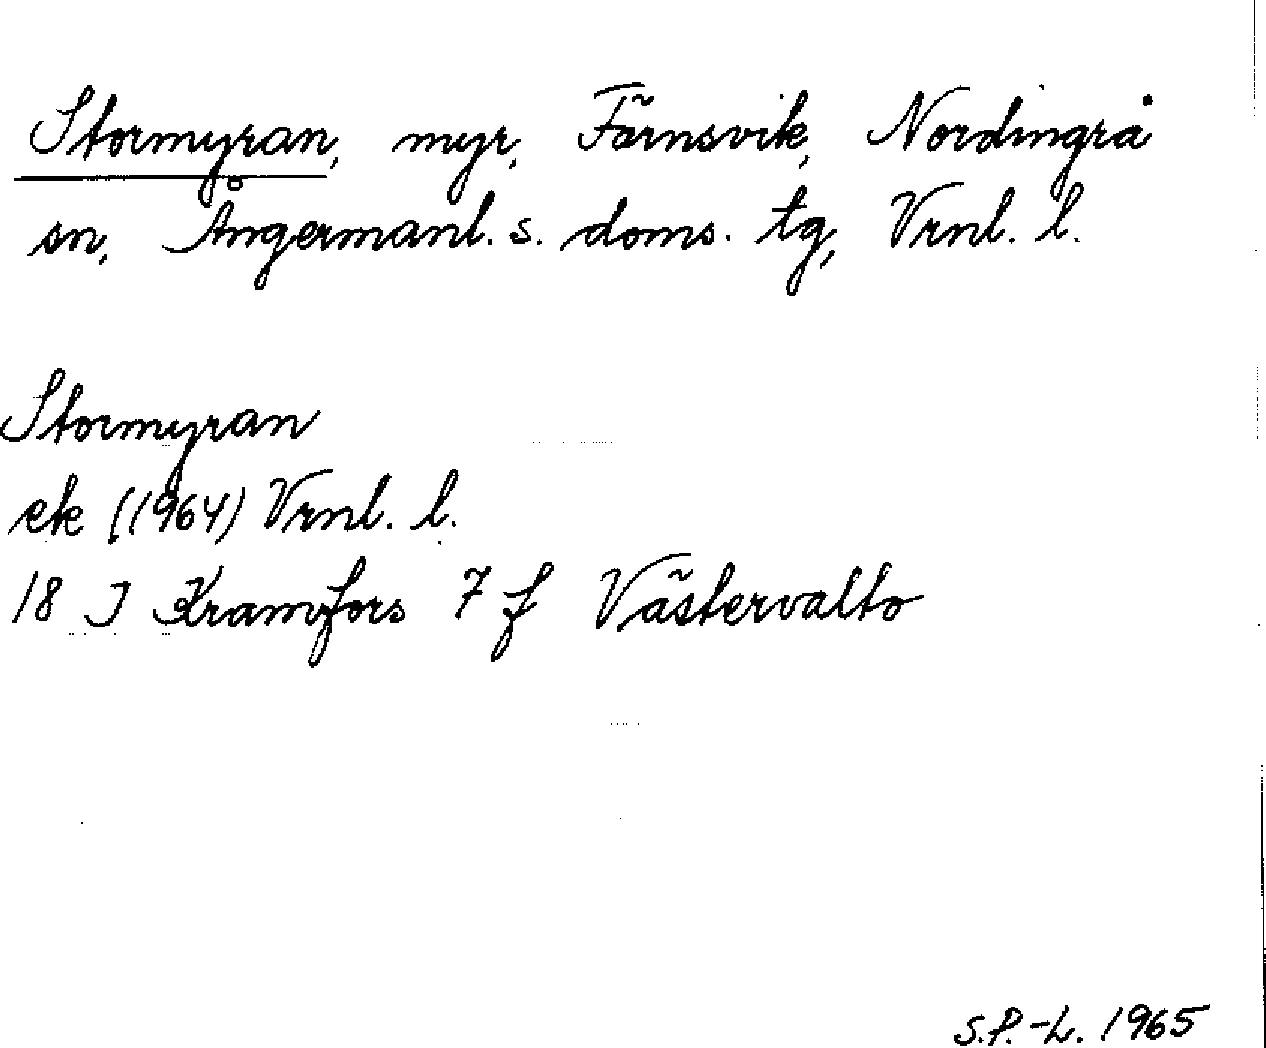 Stormyran, myr, Färnsvik, Nordingrå
sn, Ångermanl. s. doms. tg, Vrnl. l.
Stormyran
ek (1964) Vrnl. l.
18 J Kramfors 7 f Västervalto
S.P.-L. 1965